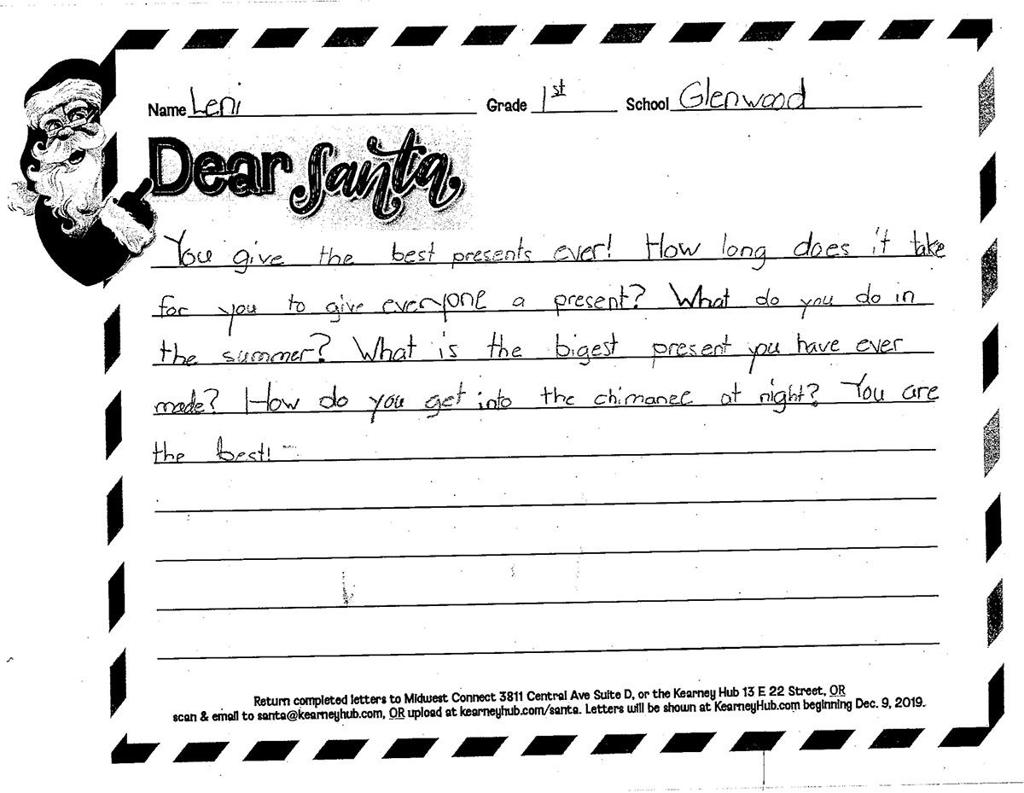 Name Leni Grade 1st School Glenwood
Dear Santa,
You give the best presents ever! How long does it take
for you to give everyone a present? What do you do in
the summer? What is the bigest present you have ever
made? How do you get into the chimanee at night? You are
the best!
Return completed letters to Midwest Connect 3811 Central Ave Suite D, or the Kearney Hub 13 E 22 Street, OR
scan & email to santa@kearneyhub.com, OR upload at kearneyhub.com/santa. Letters will be shown at KearneyHub.com beginning Dec. 9, 2019.